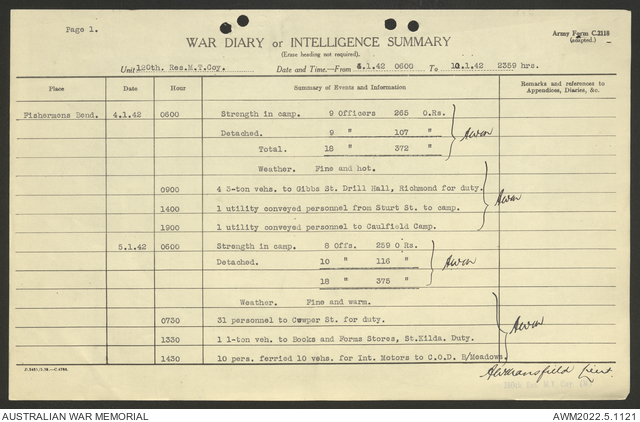 Page 1.
Army Form C.2118
(adapted.)
WAR DIARY or INTELLIGENCE SUMMARY
(Erase heading not required).
Unit 120th. Res.M.T.Coy. Date and Time.—From 4.1.42 0600 To 10.1.42 2359 hrs.
Place Date Hour Summary of Events and Information Remarks and references to Appendices, Diaries, &c.
Fishermens Bend. 4.1.42 0600 Strength in camp. 9 Officers 265 O.Rs.
Detached. 9 " 107 "
Total. 18 " 372 "
Weather. Fine and hot.
0900 4 3-ton vehs. to Gibbs St. Drill Hall, Richmond for duty.
1400 1 utility conveyed personnel from Sturt St. to camp.
1900 1 utility conveyed personnel to Caulfield Camp.
5.1.42 0600 Strength in camp. 8 Offs. 259 O Rs.
Detached. 10 " 116 "
18 " 375 "
Weather. Fine and warm.
0730 31 personnel to Cowper St. for duty.
1330 1 1-ton veh. to Books and Forms Stores, St.Kilda. Duty.
1430 10 pers. ferried 10 vehs. for Int. Motors to C.O.D. B/Meadows.
Mansfield Lieut.
AUSTRALIAN WAR MEMORIAL AWM2022.5.1121